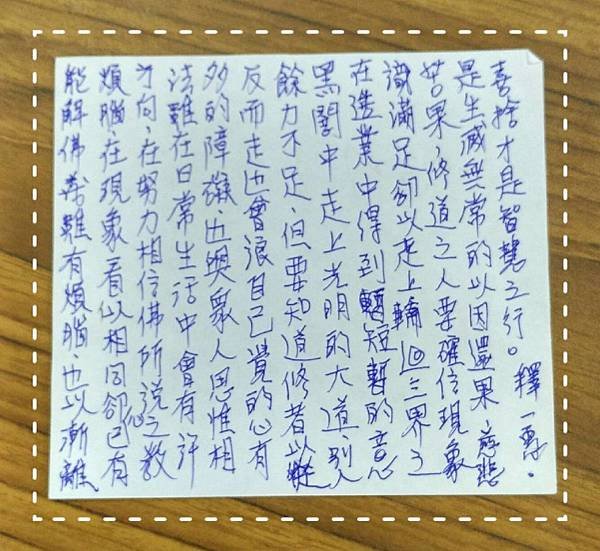 能解佛義雖有煩惱、也以漸離
煩惱、在現象看以相同卻已有
方向、在努力相信佛所說之教
法雖在日常生活中會有許
多的障礙、也與眾人思惟相
反而走也會浪自己覺的心有
餘力不足、但要知道修者以從
黑闇中走上光明的大道、別人
在造業中得到暫短暫的意
識滿足卻以走上輪迴三界之
苦果，修道之人要確信現象
是生滅無常的以因還果、慈悲
喜捨才是智慧之行。釋一惠.